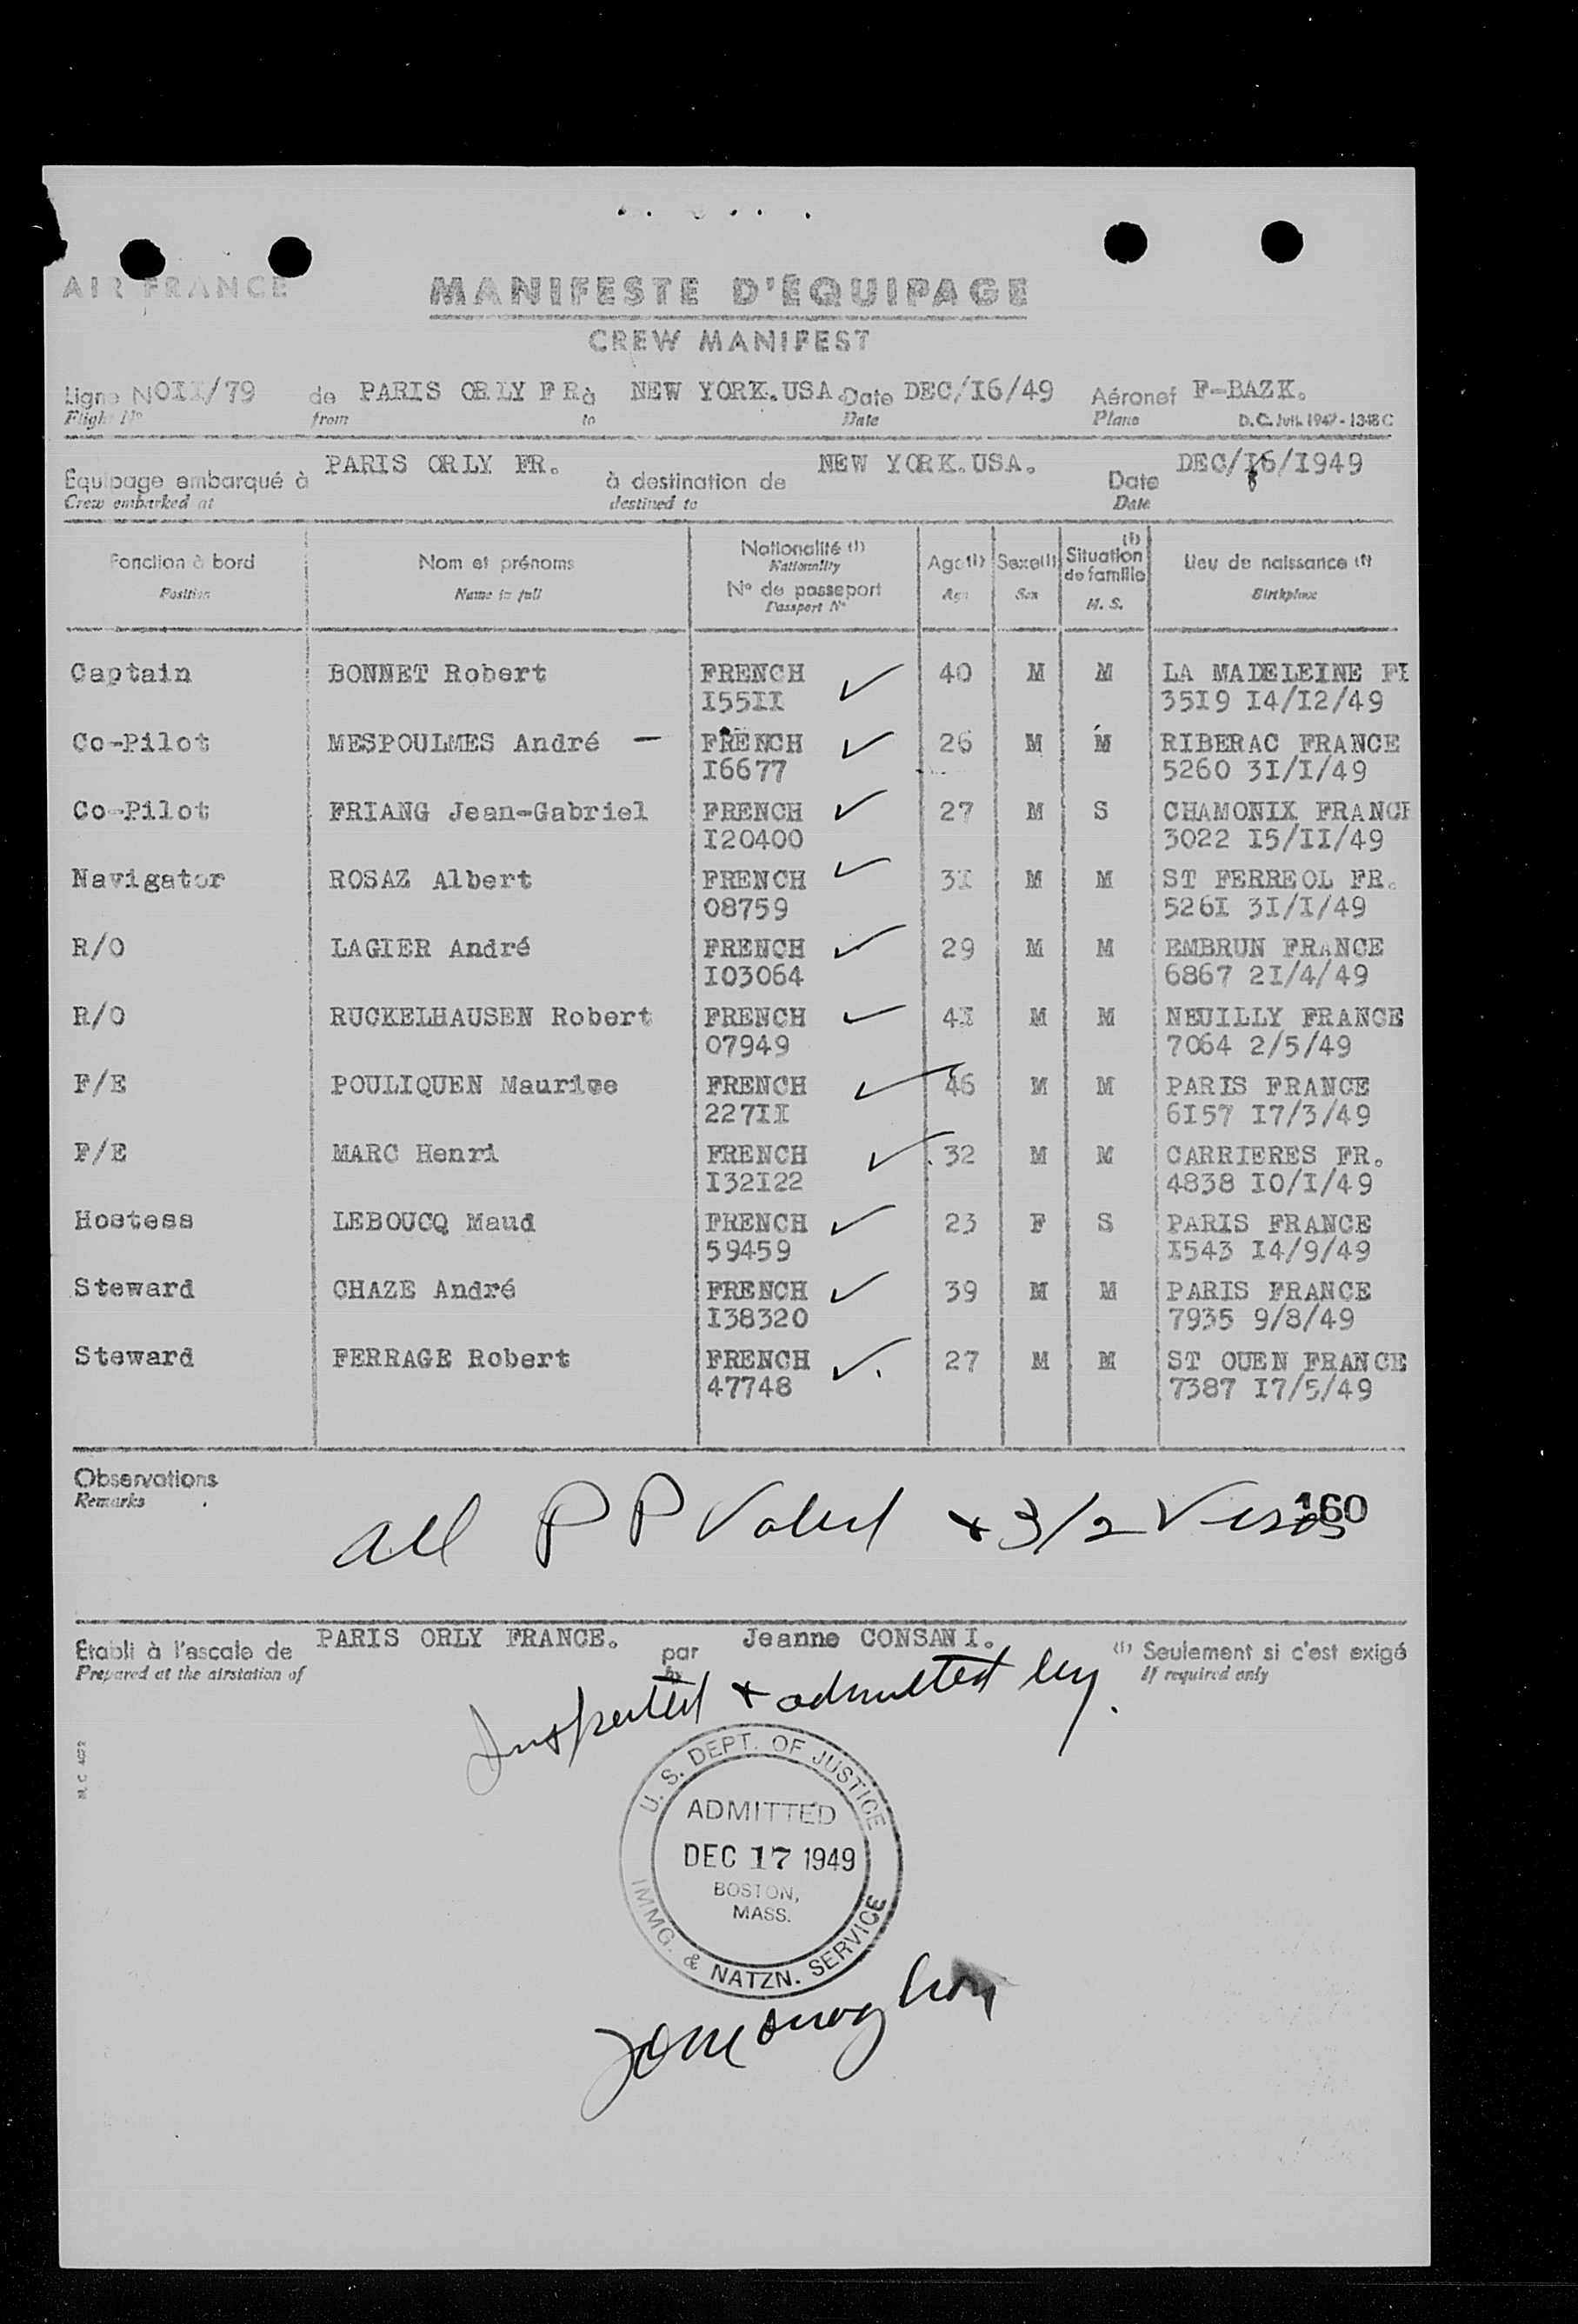 AIR FRANCE
MANIFESTE D'ÉQUIPAGE
CREW MANIFEST
Ligne NOII/79 de PARIS ORLY FR à NEW YORK.USA. Date DEC/I6/49 Aéronef F-BAZK.
Flight Nº from to Date Plane D.C. Juil. 1947 - 1348 C
Equipage embarqué à PARIS ORLY FR. à destination de NEW YORK.USA. Date DEC/I6/I949
Crew embarked at destined to Date
Fonction à bord Nom et prénoms Nationalité (1) Age(1) Sexe(1) Situation de famille (1) Lieu de naissance (1)
Position Name in full Nationality Age Sex M. S. Birthplace
Nº de passeport
Passport Nº
Captain BONNET Robert FRENCH 40 M M LA MADELEINE
I55II 35I9 I4/I2/49
Co-Pilot MESPOULMES André — FRENCH 26 M M RIBERAC FRANCE
I6677 5260 3I/I/49
Co-Pilot FRIANG Jean-Gabriel FRENCH 27 M S CHAMONIX FRANCE
I20400 3022 I5/II/49
Navigator ROSAZ Albert FRENCH 3I M M ST FERREOL FR.
08759 526I 3I/I/49
R/O LAGIER André FRENCH 29 M M EMBRUN FRANCE
I03064 6867 2I/4/49
R/O RUCKELHAUSEN Robert FRENCH 4I M M NEUILLY FRANCE
07949 7064 2/5/49
F/E POULIQUEN Maurice FRENCH 46 M M PARIS FRANCE
227II 6I57 I7/3/49
F/E MARC Henri FRENCH 32 M M CARRIERES FR.
I32I22 4838 I0/I/49
Hostess LEBOUCQ Maud FRENCH 23 F S PARIS FRANCE
59459 I543 I4/9/49
Steward CHAZE André FRENCH 39 M M PARIS FRANCE
I38320 7935 9/8/49
Steward FERRAGE Robert FRENCH 27 M M ST OUEN FRANCE
47748 7387 I7/5/49
Observations
Remarks
all PP Valid + 3/2 Visas 160
Etabli à l'escale de PARIS ORLY FRANCE. par Jeanne CONSANI. (1) Seulement si c'est exigé
Prepared at the airstation of by If required only
Inspected + admitted by
M.C 4072
U. S. DEPT. OF JUSTICE
ADMITTED
DEC 17 1949
BOSTON,
MASS.
IMMG. & NATZN. SERVICE